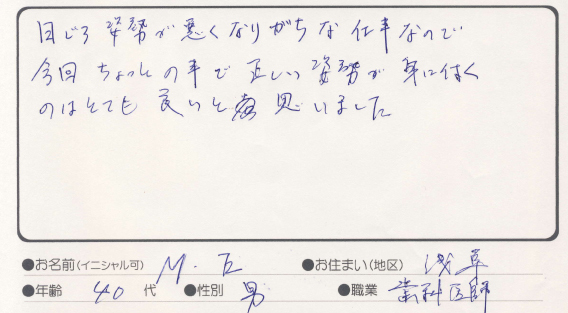 日ごろ 姿勢が悪くなりがちな仕事なので
今回 ちょっとの事で 正しい姿勢が 身に付く
のはとても 良いと 思いました
●お名前(イニシャル可) M.E ●お住まい(地区) 浅草
●年齢 40 代 ●性別 男 ●職業 歯科医師